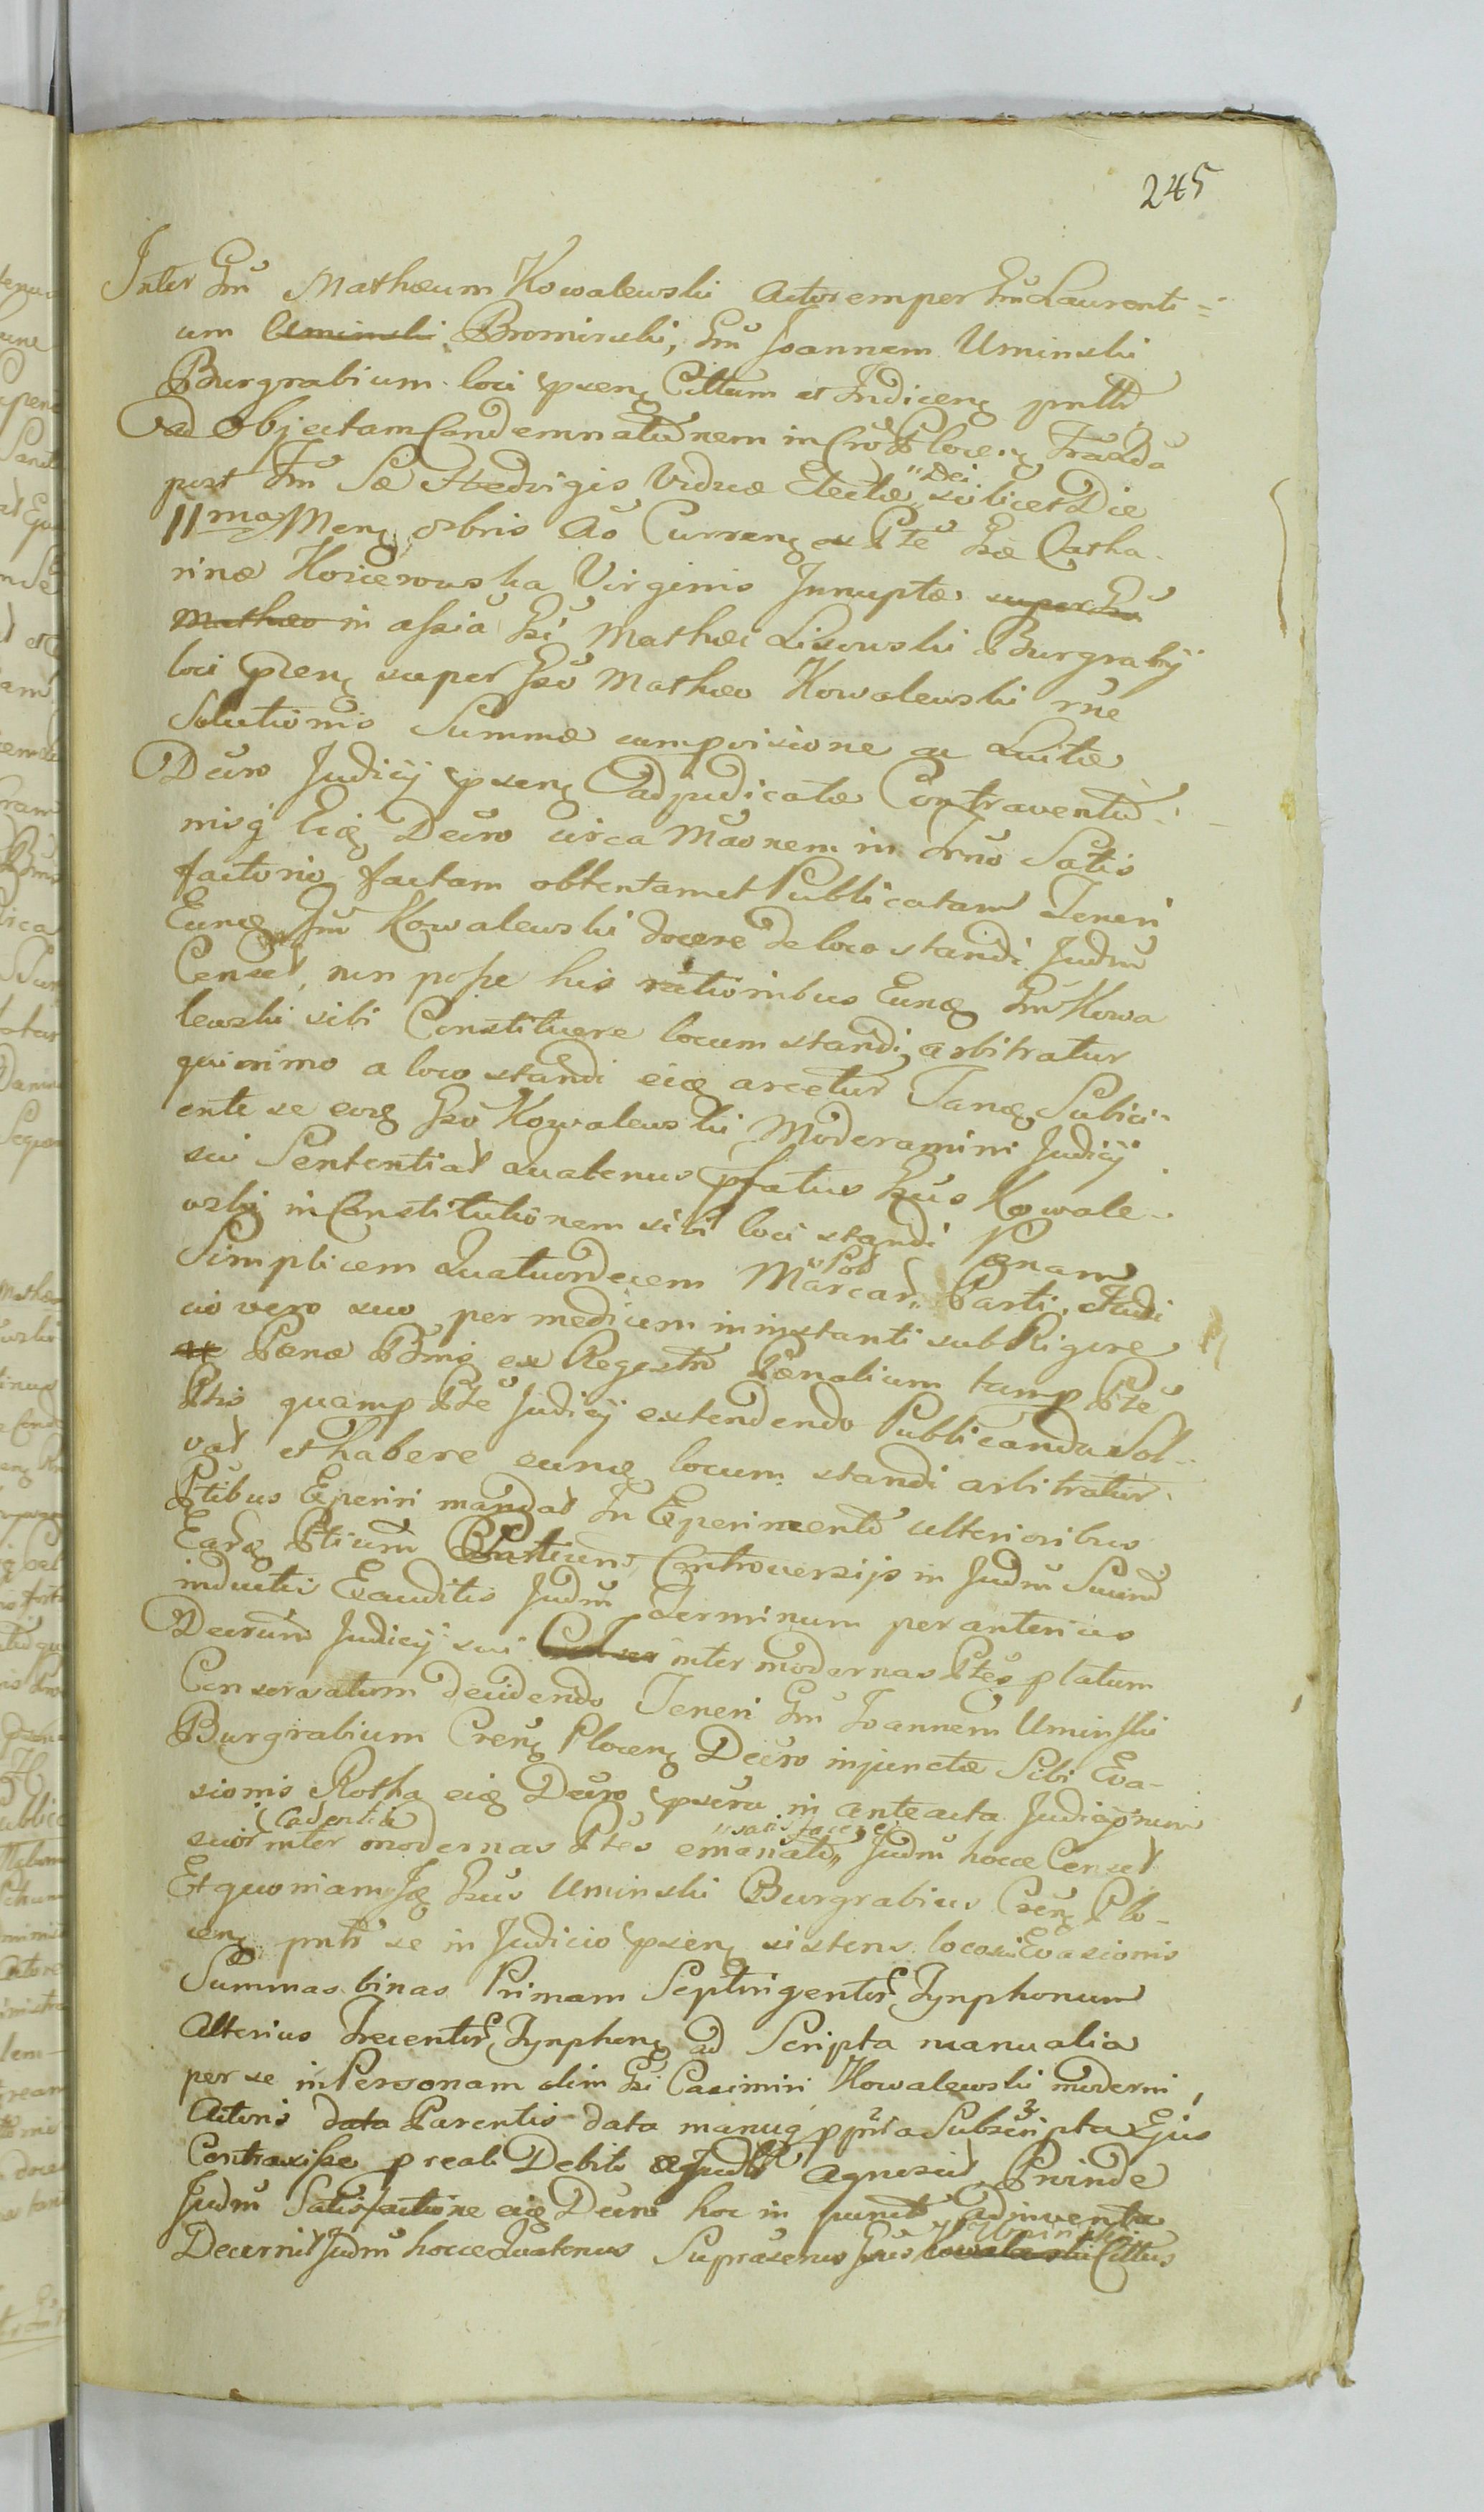 245
Inter Gm̃ Mathæum Kowalewski Actorem per Gm̃ Laurenti=
um Uminski Brominski, Gm̃ Joannem Uminski
Burgrabium loci pseng Cittum et Indiceng pntb̃
ad Objectam Condemnationem in Crõ Ploceng Fræxda
post Fm̃ Sæ Hedvigis Viduæ Electæ "Dei scilicet Die
11ma Meng 8bris Aõ Curreng ex Pte Gsæ Catha-
rinæ Koziorowska Virginis Innuptæ super Gso
Matheo in assia Gsi Mathæi Lisowski Burgrabij
loci pseng super Gso Mathæo Kowalewski rñe
Solutionis Summæ comprisione ac Luitæ
Decro Judicij pseng adjudicatæ Contraventio-
nisq Eiq Decro circa Maõnem in Trño Satis
factorio factam obtentam et Publicatam Teneri
Eunq Gm̃ Kowalewski docere de loco standi Judm̃
Censet, non posse his rationibus Eunq Gm̃ Kowa
lewski sibi Constituere locum standi, arbitratur
quinimo a loco standi eiq arcetur Tanq Subici-
ente se eoq Gso Kowalewski Moderamini Judicij
sui Sententiat Quatenus pfatus Gsus Kowale-
wski in Constitutionem sibi loci standi Pænam
Simplicem Quatuordecem Marcar "Pol" Parti, Judi
cio vero suo per medium in instanti sub Rigore
ex Pænæ Bnis ex Regestro Pænalium tam p Pte
Ptis quam p Pte Judicij extendendo Publicanda Sol-
vat et habere eunq locum standi arbitratur.
Ptibus Experiri mandat In Experimento ulterioribus
Earq Ptium Partium Controversijs in Judm̃ Suum
inductis Exauditis Judm̃ Terminum per anterius
Decretum Judicij sui inter modernas Ptes platum
Conservatum decidendo Teneri Gm̃ Joannem Uminski
Burgrabium Creng Ploceng Decro injunctæ Sibi Eva-
sionis Rotha eiq Decro pscra in anteacta Judicior̃um
suor̃ Cadentia inter modernas Ptes emanato "satisfacere" Judm̃ hocce Censet
Et quoniam Iq Gsus Uminski Burgrabius Creng Plo-
ceng pntr̃ se in Judicio pseng sistens loco sui Evasionis
Summas binas Primam Septingentor̃ Tynphonum
Alterius Trecentor̃ Tynphong ad Scripta manualia
per se in Personam olim Gsi Casimiri Kowalewski moderni
Actoris data Parentis data manuq ppria Subscripta Ejus
Contraxisse p reali Debito agnoscit Proinde
Judm̃ Satisfactione eiq Decro hoc in puncto adinventa
Decernit Judm̃ hocce Quatenus Suprascrus Gsus Kowalewski Uminski Cittus